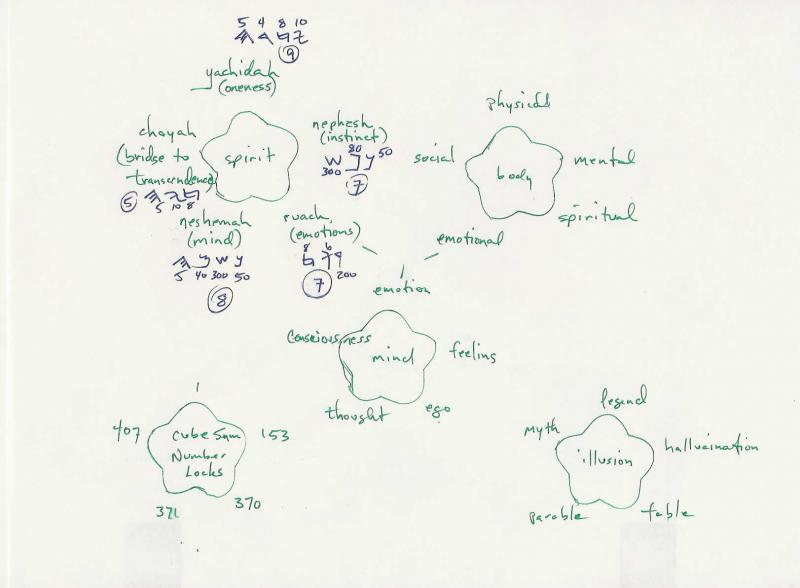 5 4 8 10
𐤉𐤇𐤃𐤄
9
yachidah
(oneness)
chayah
(bridge to
transcendence)
𐤇𐤉𐤄
5
5 10 8
spirit
nephesh
(instinct)
80
𐤍𐤐𐤔
50
300
7
neshemah
(mind)
𐤍𐤔𐤌𐤄
5 40 300 50
8
ruach
(emotions)
8 6
𐤓𐤅𐤇
200
7
physical
social
body
mental
spiritual
emotional
emotion
consciousness
mind
feeling
thought
ego
1
407
Cube Sum
Number
Locks
153
371
370
legend
myth
illusion
hallucination
parable
fable